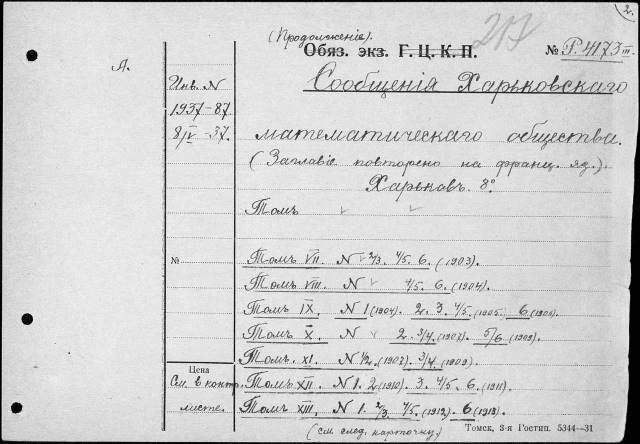 2.
(Продолженіе).
217
Обяз. экз. Г. Ц. К. П. № P.4173 III.
А.
Инв. N
1937-87
8/IV-37.
Сообщенія Харьковскаго
математическаго общества.
(Заглавіе повторено на франц. яз.).
Харьковъ. 8°
Томъ
№ Томъ VII. N 2/3. 4/5. 6. (1903)
Томъ VIII. N 4/5. 6. (1904)
Томъ IX. N 1 (1904). 2. 3. 4/5. (1905. 6 (1906)
Томъ X. N 2. 3/4. (1907. 5/6. (1909)
Томъ XI. N 1/2. (1907. 3/4. (1909)
Цена
См. в контр. листе.
Томъ XII. N 1. 2 (1910) 3. 4/5. 6. (1911)
Томъ XIII. N 1. 2/3. 4/5. (1912) 6 (1913)
(см след. карточку.) Томск, 3-я Гостип. 5344—31